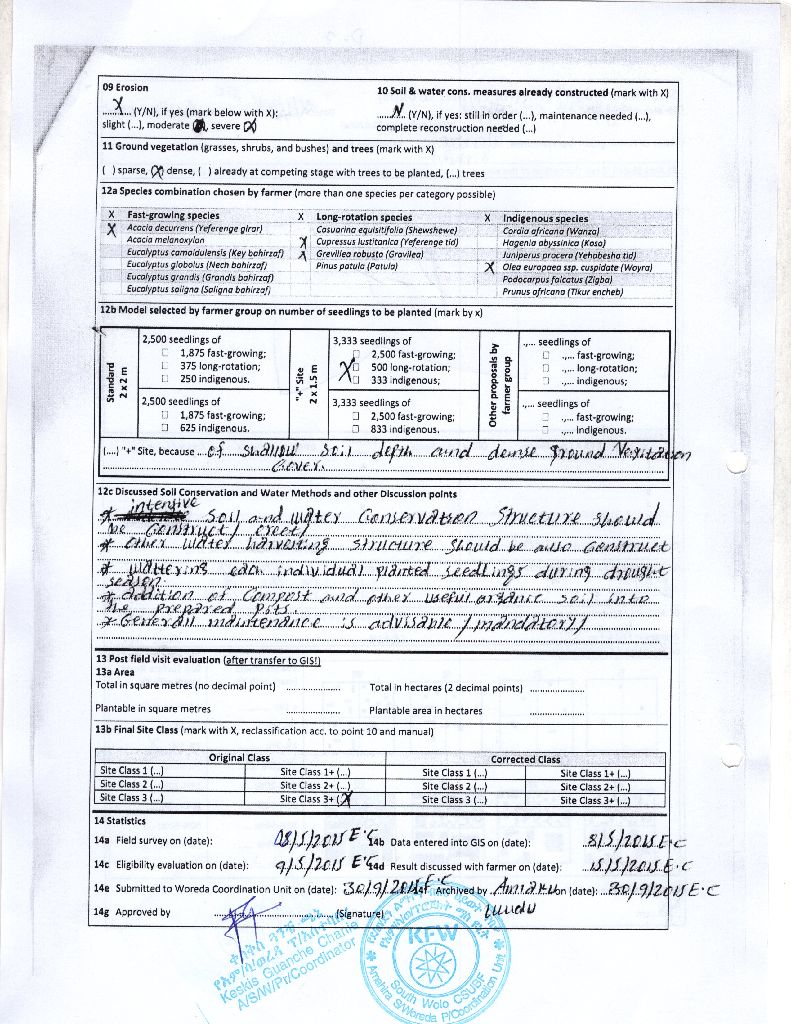 09 Erosion
10 Soil & water cons. measures already constructed (mark with X)
...X... (Y/N), if yes (mark below with X):
...N... (Y/N), if yes: still in order (...), maintenance needed (...),
slight (...), moderate, severe (X)
complete reconstruction needed (...)
11 Ground vegetation (grasses, shrubs, and bushes) and trees (mark with X)
( ) sparse, (X) dense, ( ) already at competing stage with trees to be planted, (...) trees
12a Species combination chosen by farmer (more than one species per category possible)
X Fast-growing species
X Acacia decurrens (Yeferenge girar)
Acacia melanoxylan
Eucalyptus camaldulensis (Key bahirzaf)
Eucalyptus globolus (Nech bahirzaf)
Eucalyptus grandis (Grandis bahirzaf)
Eucalyptus saligna (Saligna bahirzaf)
X Long-rotation species
Casuarina equisitifolia (Shewshewe)
X Cupressus lustitanica (Yeferenge tid)
X Grevillea robusta (Gravilea)
Pinus patula (Patula)
X Indigenous species
Cordia africana (Wanza)
Hagenia abyssinica (Koso)
Juniperus procera (Yehabesha tid)
X Olea europaea ssp. cuspidate (Wayra)
Podocarpus falcatus (Zigba)
Prunus africana (Tikur encheb)
12b Model selected by farmer group on number of seedlings to be planted (mark by x)
Standard
2 x 2 m
2,500 seedlings of
1,875 fast-growing;
375 long-rotation;
250 indigenous.
2,500 seedlings of
1,875 fast-growing;
625 indigenous.
"+" Site
2 x 1.5 m
3,333 seedlings of
2,500 fast-growing;
X 500 long-rotation;
333 indigenous;
3,333 seedlings of
2,500 fast-growing;
833 indigenous.
Other proposals by
farmer group
.,... seedlings of
.,... fast-growing;
.,... long-rotation;
.,... indigenous;
.,... seedlings of
.,... fast-growing;
.,... indigenous.
(....) "+" Site, because ... of shallow soil depth and dense ground Vegitation
Cover.
12c Discussed Soil Conservation and Water Methods and other Discussion points
* intensive Soil and water Conservation Structure should
be Construct/ erect/
* other water harvesting structure should be also Construct
* wattering each individual planted seedlings during drought
season.
* addition of Compost and other useful organic soil into
the prepared pits.
* Generall maintenance is advisable /mandatory/
13 Post field visit evaluation (after transfer to GIS!)
13a Area
Total in square metres (no decimal point) .................
Total in hectares (2 decimal points) .................
Plantable in square metres .................
Plantable area in hectares .................
13b Final Site Class (mark with X, reclassification acc. to point 10 and manual)
Original Class
Corrected Class
Site Class 1 (...) Site Class 1+ (...) Site Class 1 (...) Site Class 1+ (...)
Site Class 2 (...) Site Class 2+ (...) Site Class 2 (...) Site Class 2+ (...)
Site Class 3 (...) Site Class 3+ (X) Site Class 3 (...) Site Class 3+ (...)
14 Statistics
14a Field survey on (date): 08/5/2015 E.C
14b Data entered into GIS on (date): 8/5/2015 E.C
14c Eligibility evaluation on (date): 9/5/2015 E.C
14d Result discussed with farmer on (date): 15/5/2015 E.C
14e Submitted to Woreda Coordination Unit on (date): 30/9/2015
14f Archived by on (date): 30/9/2015 E.C
14g Approved by ................. (Signature)
Keskis Guanche Chanie
A/S/W/Pr/Coordinator
KFW
South Wolo CSUBF
Amehira S/Woreda P/Coordination Unit